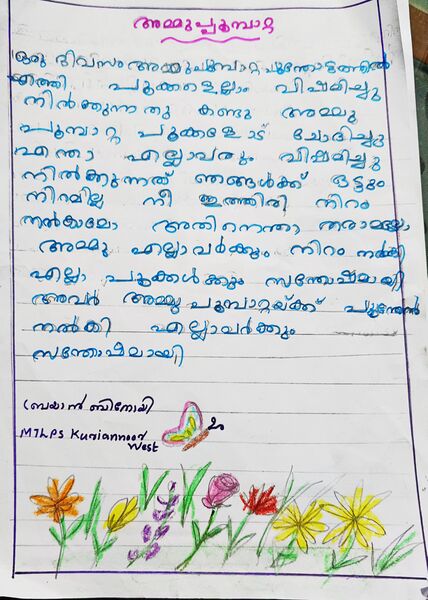 അമ്മുപൂമ്പാറ്റ
ഒരു ദിവസം അമ്മുപൂമ്പാറ്റ പൂന്തോട്ടത്തിൽ
എത്തി പൂക്കളെല്ലാം വിഷമിച്ചു
നിൽക്കുന്നതു കണ്ടു അമ്മു
പൂമ്പാറ്റ പൂക്കളോട് ചോദിച്ചു
എന്താ എല്ലാവരും വിഷമിച്ചു
നിൽക്കുന്നത് ഞങ്ങൾക്ക് ഒട്ടും
നിറമില്ല നീ ഇത്തിരി നിറം
നൽകാമോ അതിനെന്താ തരാമല്ലോ
അമ്മു എല്ലാവർക്കും നിറം നൽകി
എല്ലാ പൂക്കൾക്കും സന്തോഷമായി
അവർ അമ്മുപൂമ്പാറ്റയ്ക്ക് പൂന്തേൻ
നൽകി എല്ലാവർക്കും
സന്തോഷമായി
ബ്രയാൻ ബിനോയി
MTLPS Kuriannoor
West